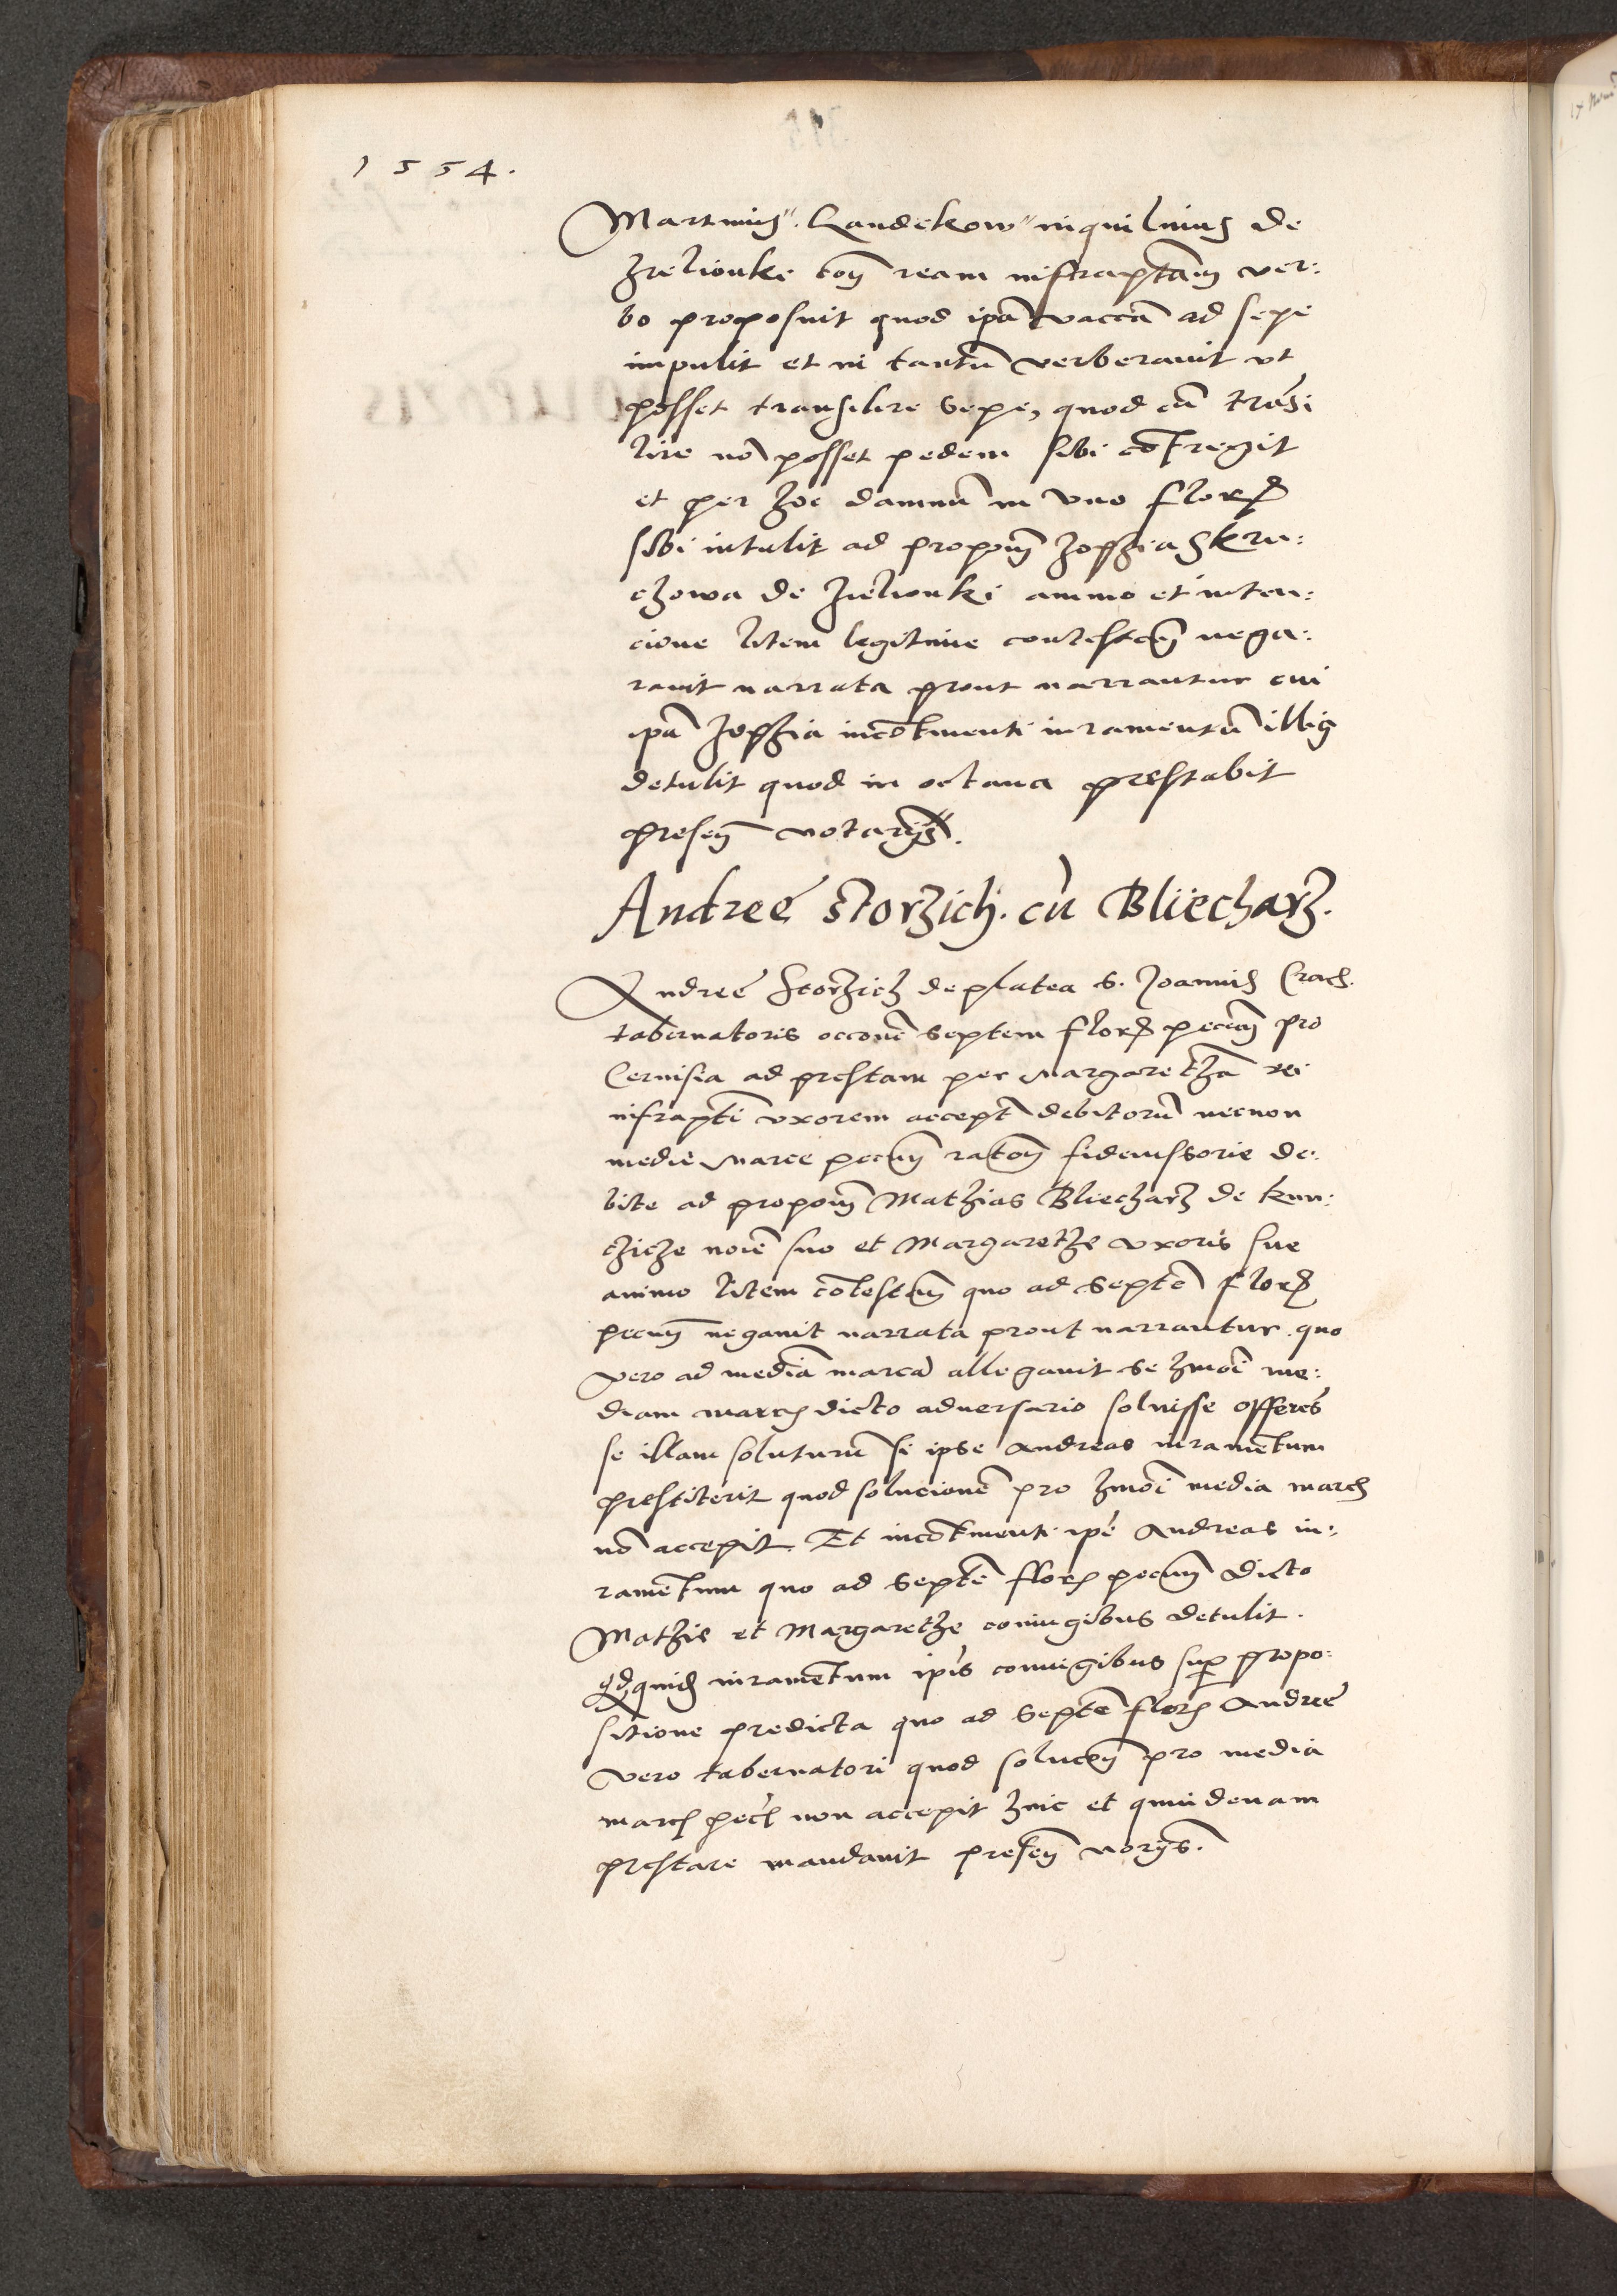 1554.
Martinus Landekow inquilinus de
Zielionki con̄ ream infrascptam ver:
bo proposuit quod ipā vaccā ad sepe
impulit et in tantū verberauit vt
posset transilire sepe, quod cū trāsi
lire nō posset pedem sibi cōfregit
et per hoc damnū in vno flor
sibi intulit ad propon̄ Zophia Kru:
czowa de Zielionki animo et inten:
cione litem legitime contestan̄ nega:
uit narrata prout narrantur cui
ipā Zophia incōtinenti iuramentū illius
detulit quod in octaua prestabit
presen̄ notarijs.
Andreę Storzich. cū Bliecharz.
Andreę Storzich de platea S. Joannis Crac.
tabernatoris occonē septem flor pecun̄ pro
Ceruisia ad prestam per Margarethā rei
infrascpti vxorem accept debitorū necnon
medie Marce pecun̄ raton̄ fideiussorie de:
bite ad propon̄ Mathias Bliecharz de kun:
czicze noīe suo et Margarethe vxoris sue
animo litem cōtestan̄ quo ad septē flor
pecun̄ negauit narrata prout narrantur. quo
vero ad mediā marcā allegauit se hmōi me:
diam marcā dicto aduersario soluisse offerēs
se illam soluturū si ipse Andreas iuramētum
prestiterit quod solucionē pro hmōi media marc
nō accepit. Et incōtinenti ipē Andreas iu:
ramētum quo ad septē flor pecun̄ dicto
Mathie et Margarethe coniugibus detulit.
Qdquid iuramētum ipīs coniugibus sup propo:
sitione predicta quo ad septē flor Andree
vero tabernatori quod solucēn pro media
marc pec non accepit hinc et quindenam
prestare mandauit presen̄ norijs.